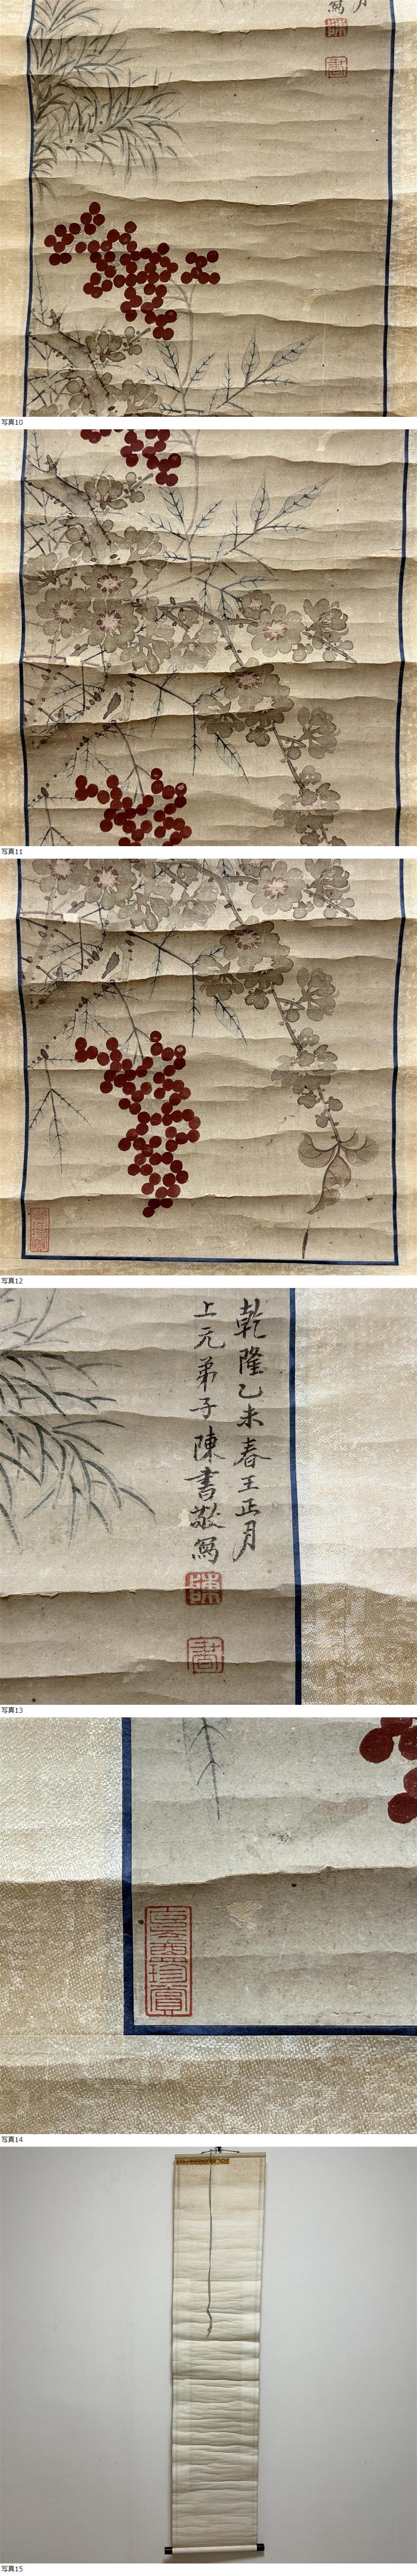 寫
月
陳
書
写真10
写真11
写真12
乾隆乙未春王正月
上元弟子陳書敬寫
陳
書
写真13
珍賞
写真14
写真15